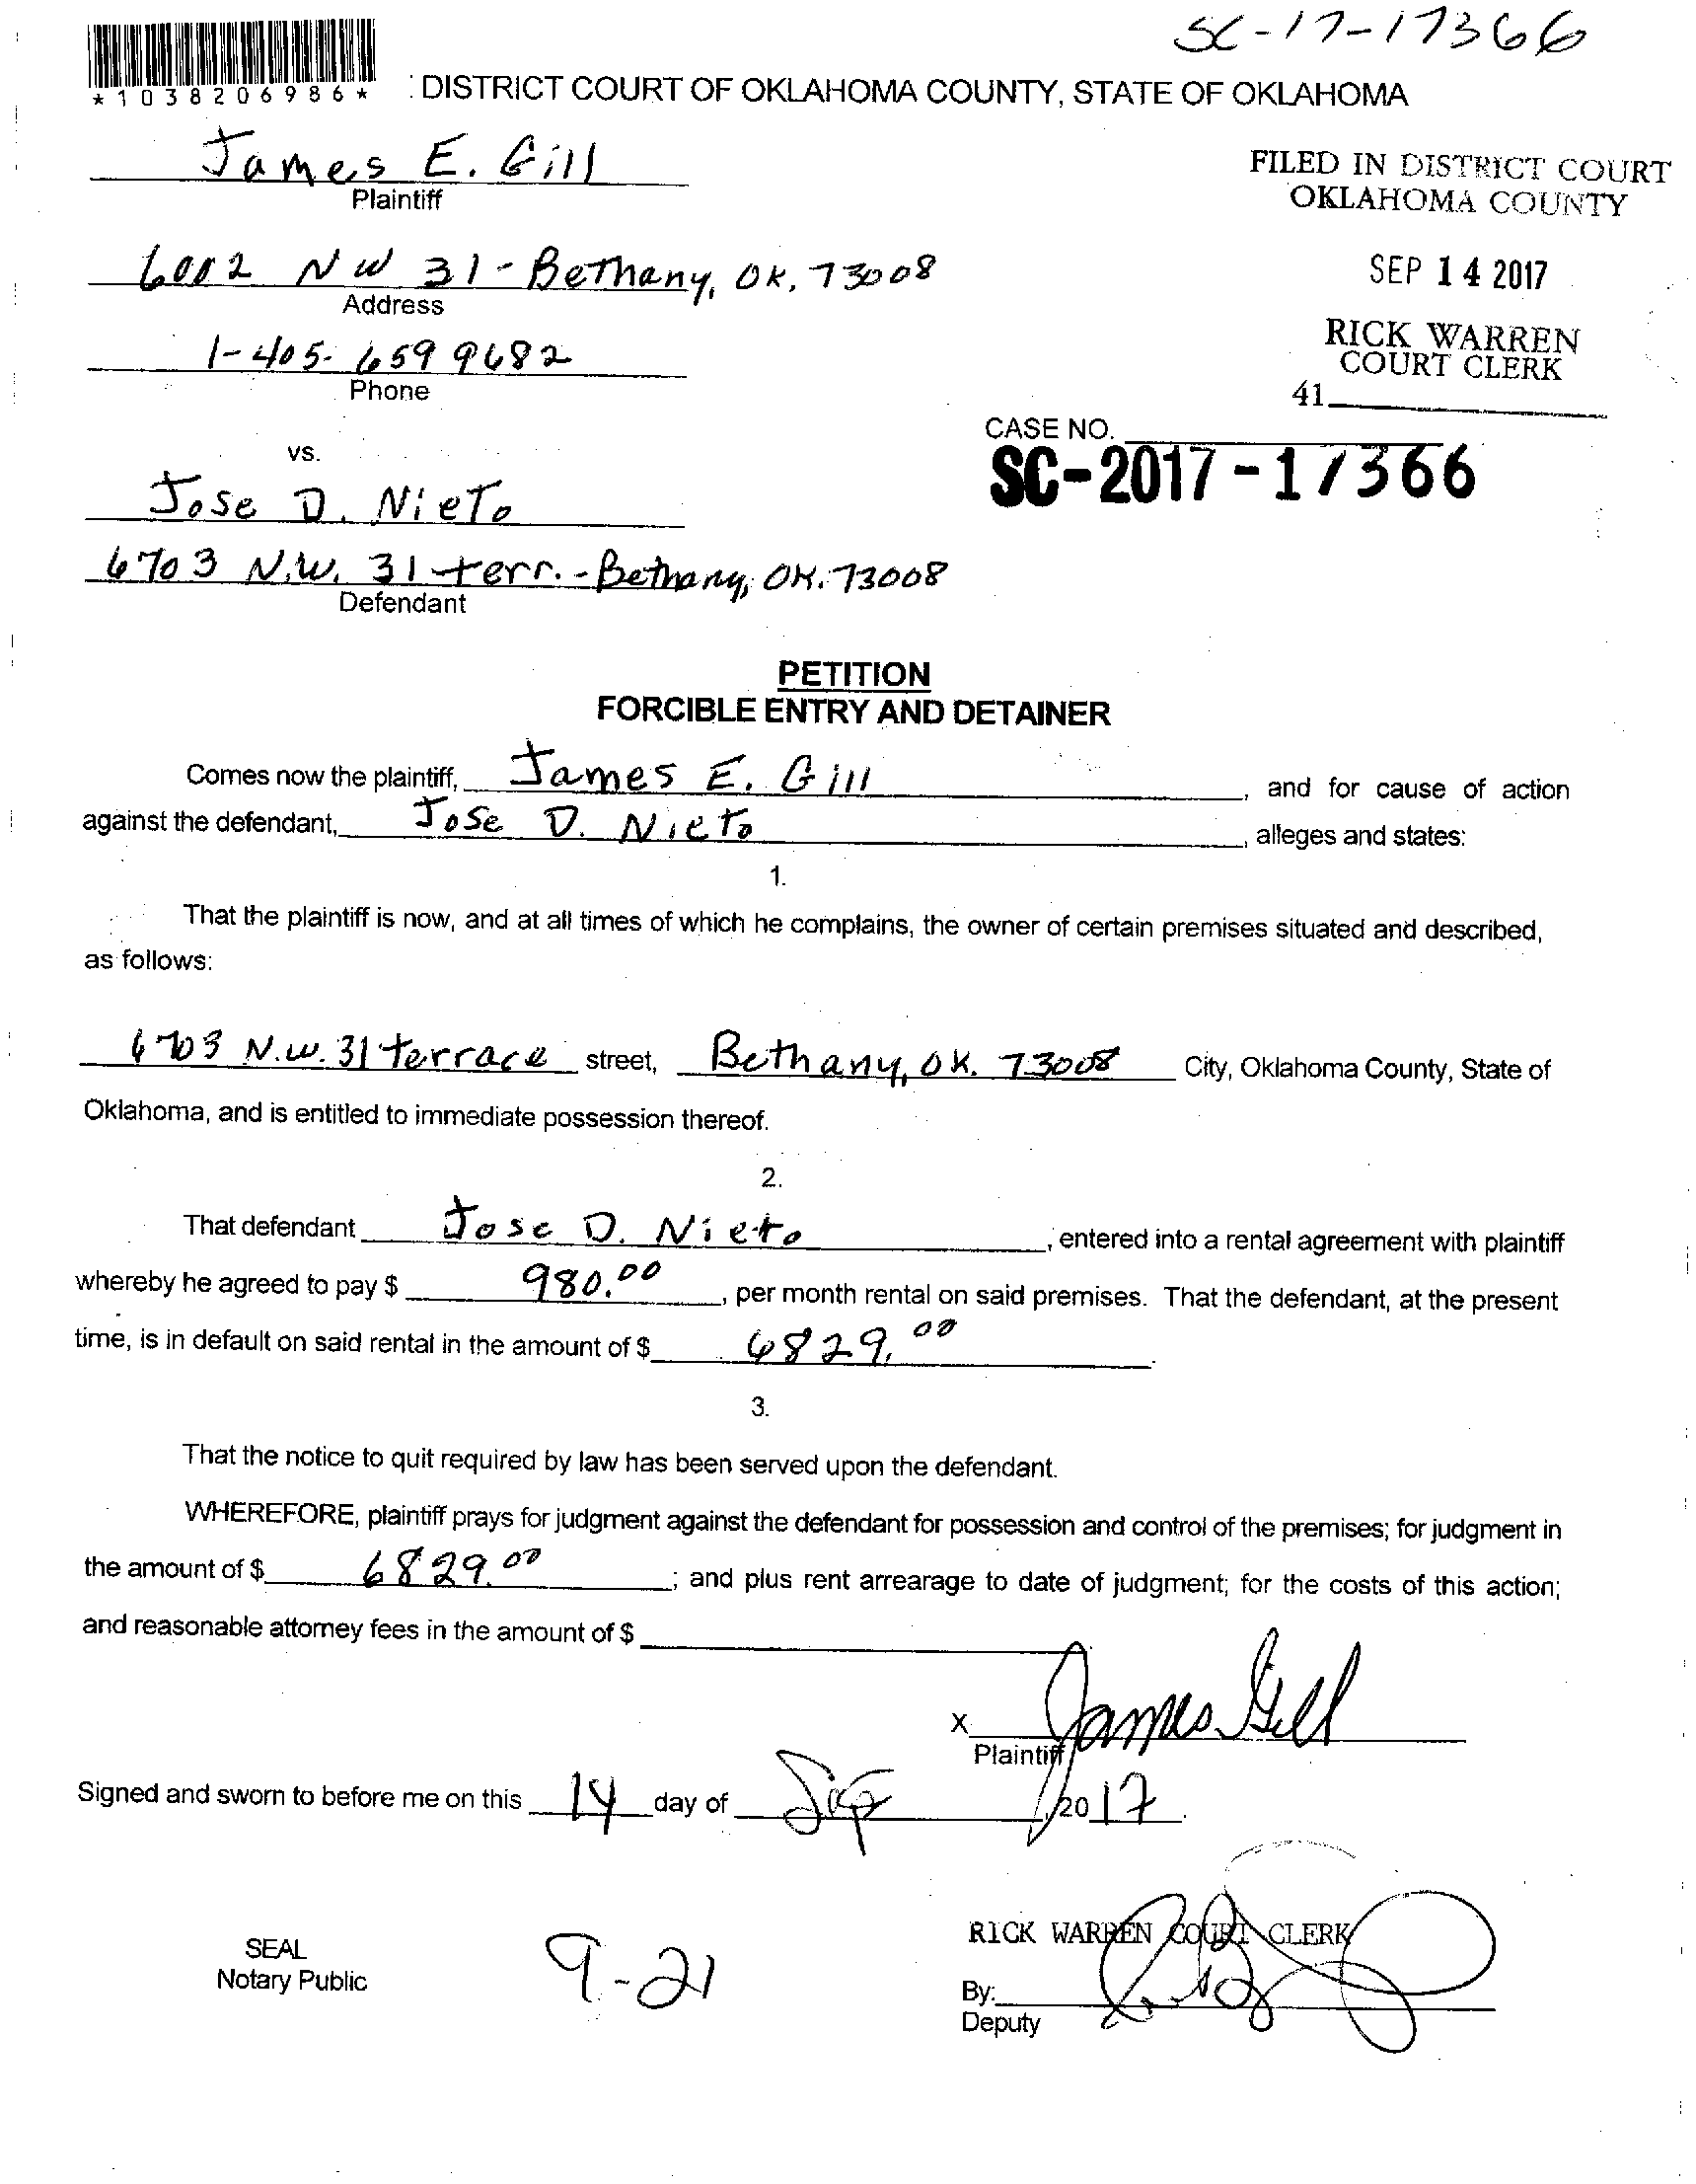 SC-17-17366
*1038206986*
DISTRICT COURT OF OKLAHOMA COUNTY, STATE OF OKLAHOMA
James E. Gill
Plaintiff
FILED IN DISTRICT COURT
OKLAHOMA COUNTY
6002 NW 31 - Bethany, OK, 73008
Address
SEP 14 2017
1-405-659 9682
Phone
RICK WARREN
COURT CLERK
41
vs.
CASE NO.
SC-2017-17366
Jose D. Nieto
6703 N.W. 31 terr. - Bethany, OK. 73008
Defendant
PETITION
FORCIBLE ENTRY AND DETAINER
Comes now the plaintiff, James E. Gill, and for cause of action
against the defendant, Jose D. Nieto, alleges and states:
1.
That the plaintiff is now, and at all times of which he complains, the owner of certain premises situated and described,
as follows:
6703 N.W. 31 terrace street, Bethany, OK. 73008 City, Oklahoma County, State of
Oklahoma, and is entitled to immediate possession thereof.
2.
That defendant Jose D. Nieto, entered into a rental agreement with plaintiff
whereby he agreed to pay $ 980.00, per month rental on said premises. That the defendant, at the present
time, is in default on said rental in the amount of $ 6829.00.
3.
That the notice to quit required by law has been served upon the defendant.
WHEREFORE, plaintiff prays for judgment against the defendant for possession and control of the premises; for judgment in
the amount of $ 6829.00; and plus rent arrearage to date of judgment; for the costs of this action;
and reasonable attorney fees in the amount of $
X James Gill
Plaintiff
Signed and sworn to before me on this 14 day of Sep, 2017.
SEAL
Notary Public
9-21
RICK WARREN COURT CLERK
By:
Deputy